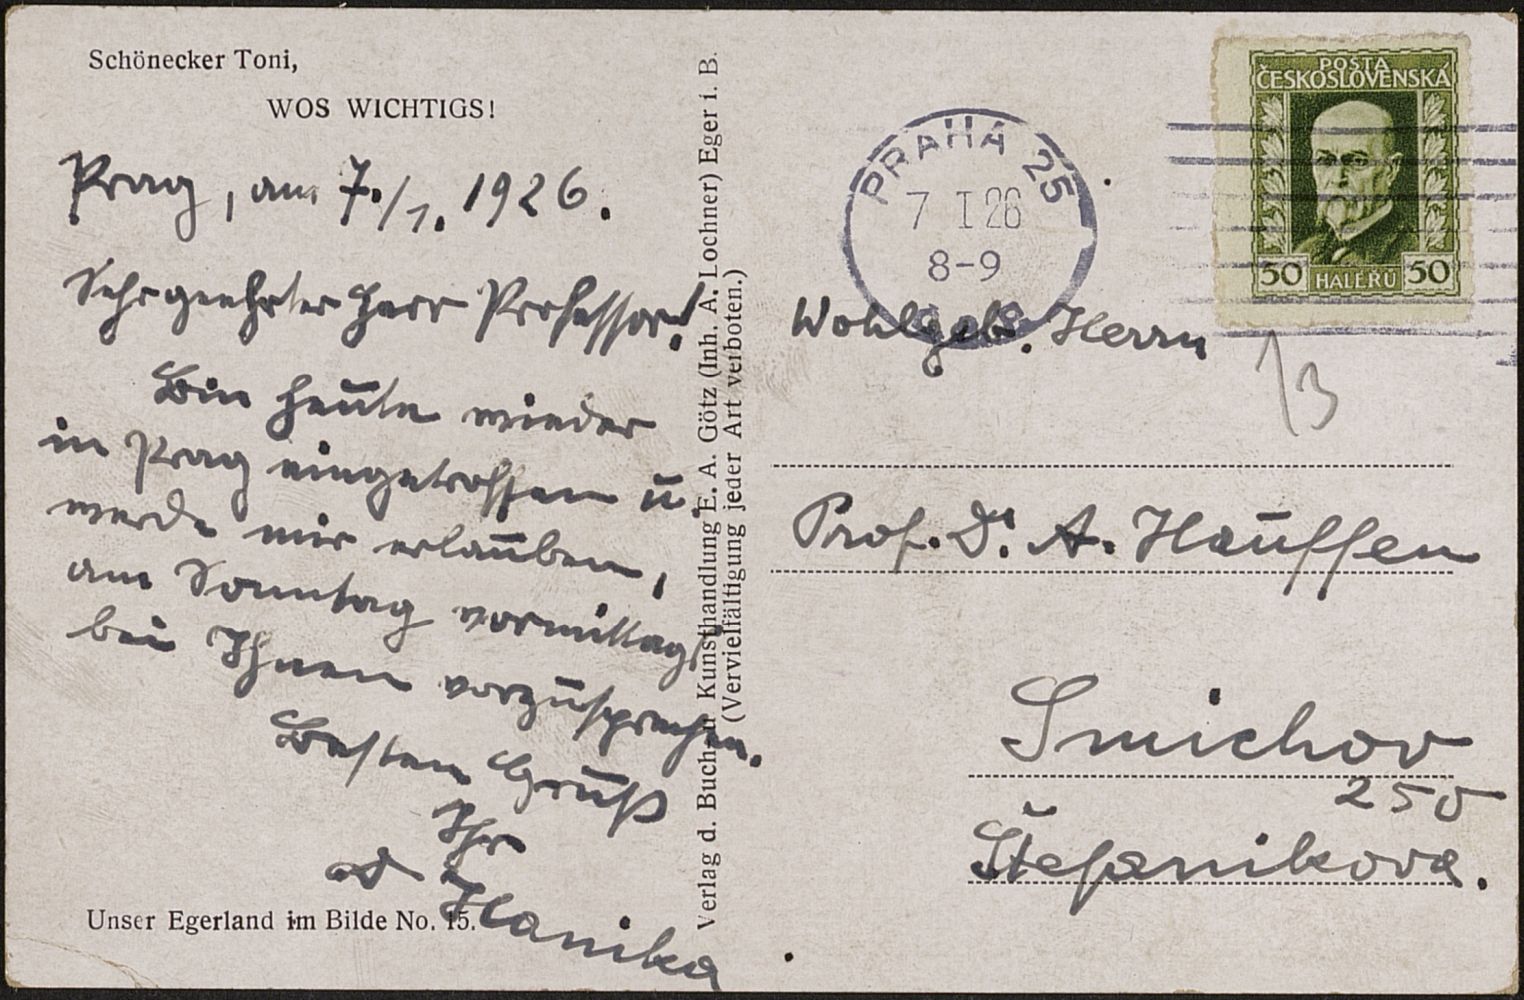 Schönecker Toni,
WOS WICHTIGS!
Prag, am 7./1. 1926.
Sehr geehrter Herr Professor!
Bin heute wieder
in Prag eingetroffen u.
werde mir erlauben,
am Sonntag vormittags
bei Ihnen vorzusprechen.
Besten Gruß
Ihr
Hanika
Unser Egerland im Bilde No. 15.
Verlag d. Buch- u Kunsthandlung E. A. Götz (Inh. A. Lochner) Eger i. B.
(Vervielfältigung jeder Art verboten.)
PRAHA 25
7 I 26
8-9
POŠTA
ČESKOSLOVENSKÁ
50 HALÉŘŮ 50
Wohlgeb. Herrn
13
Prof. Dr. A. Hauffen
Smichov
250
Štefanikova.